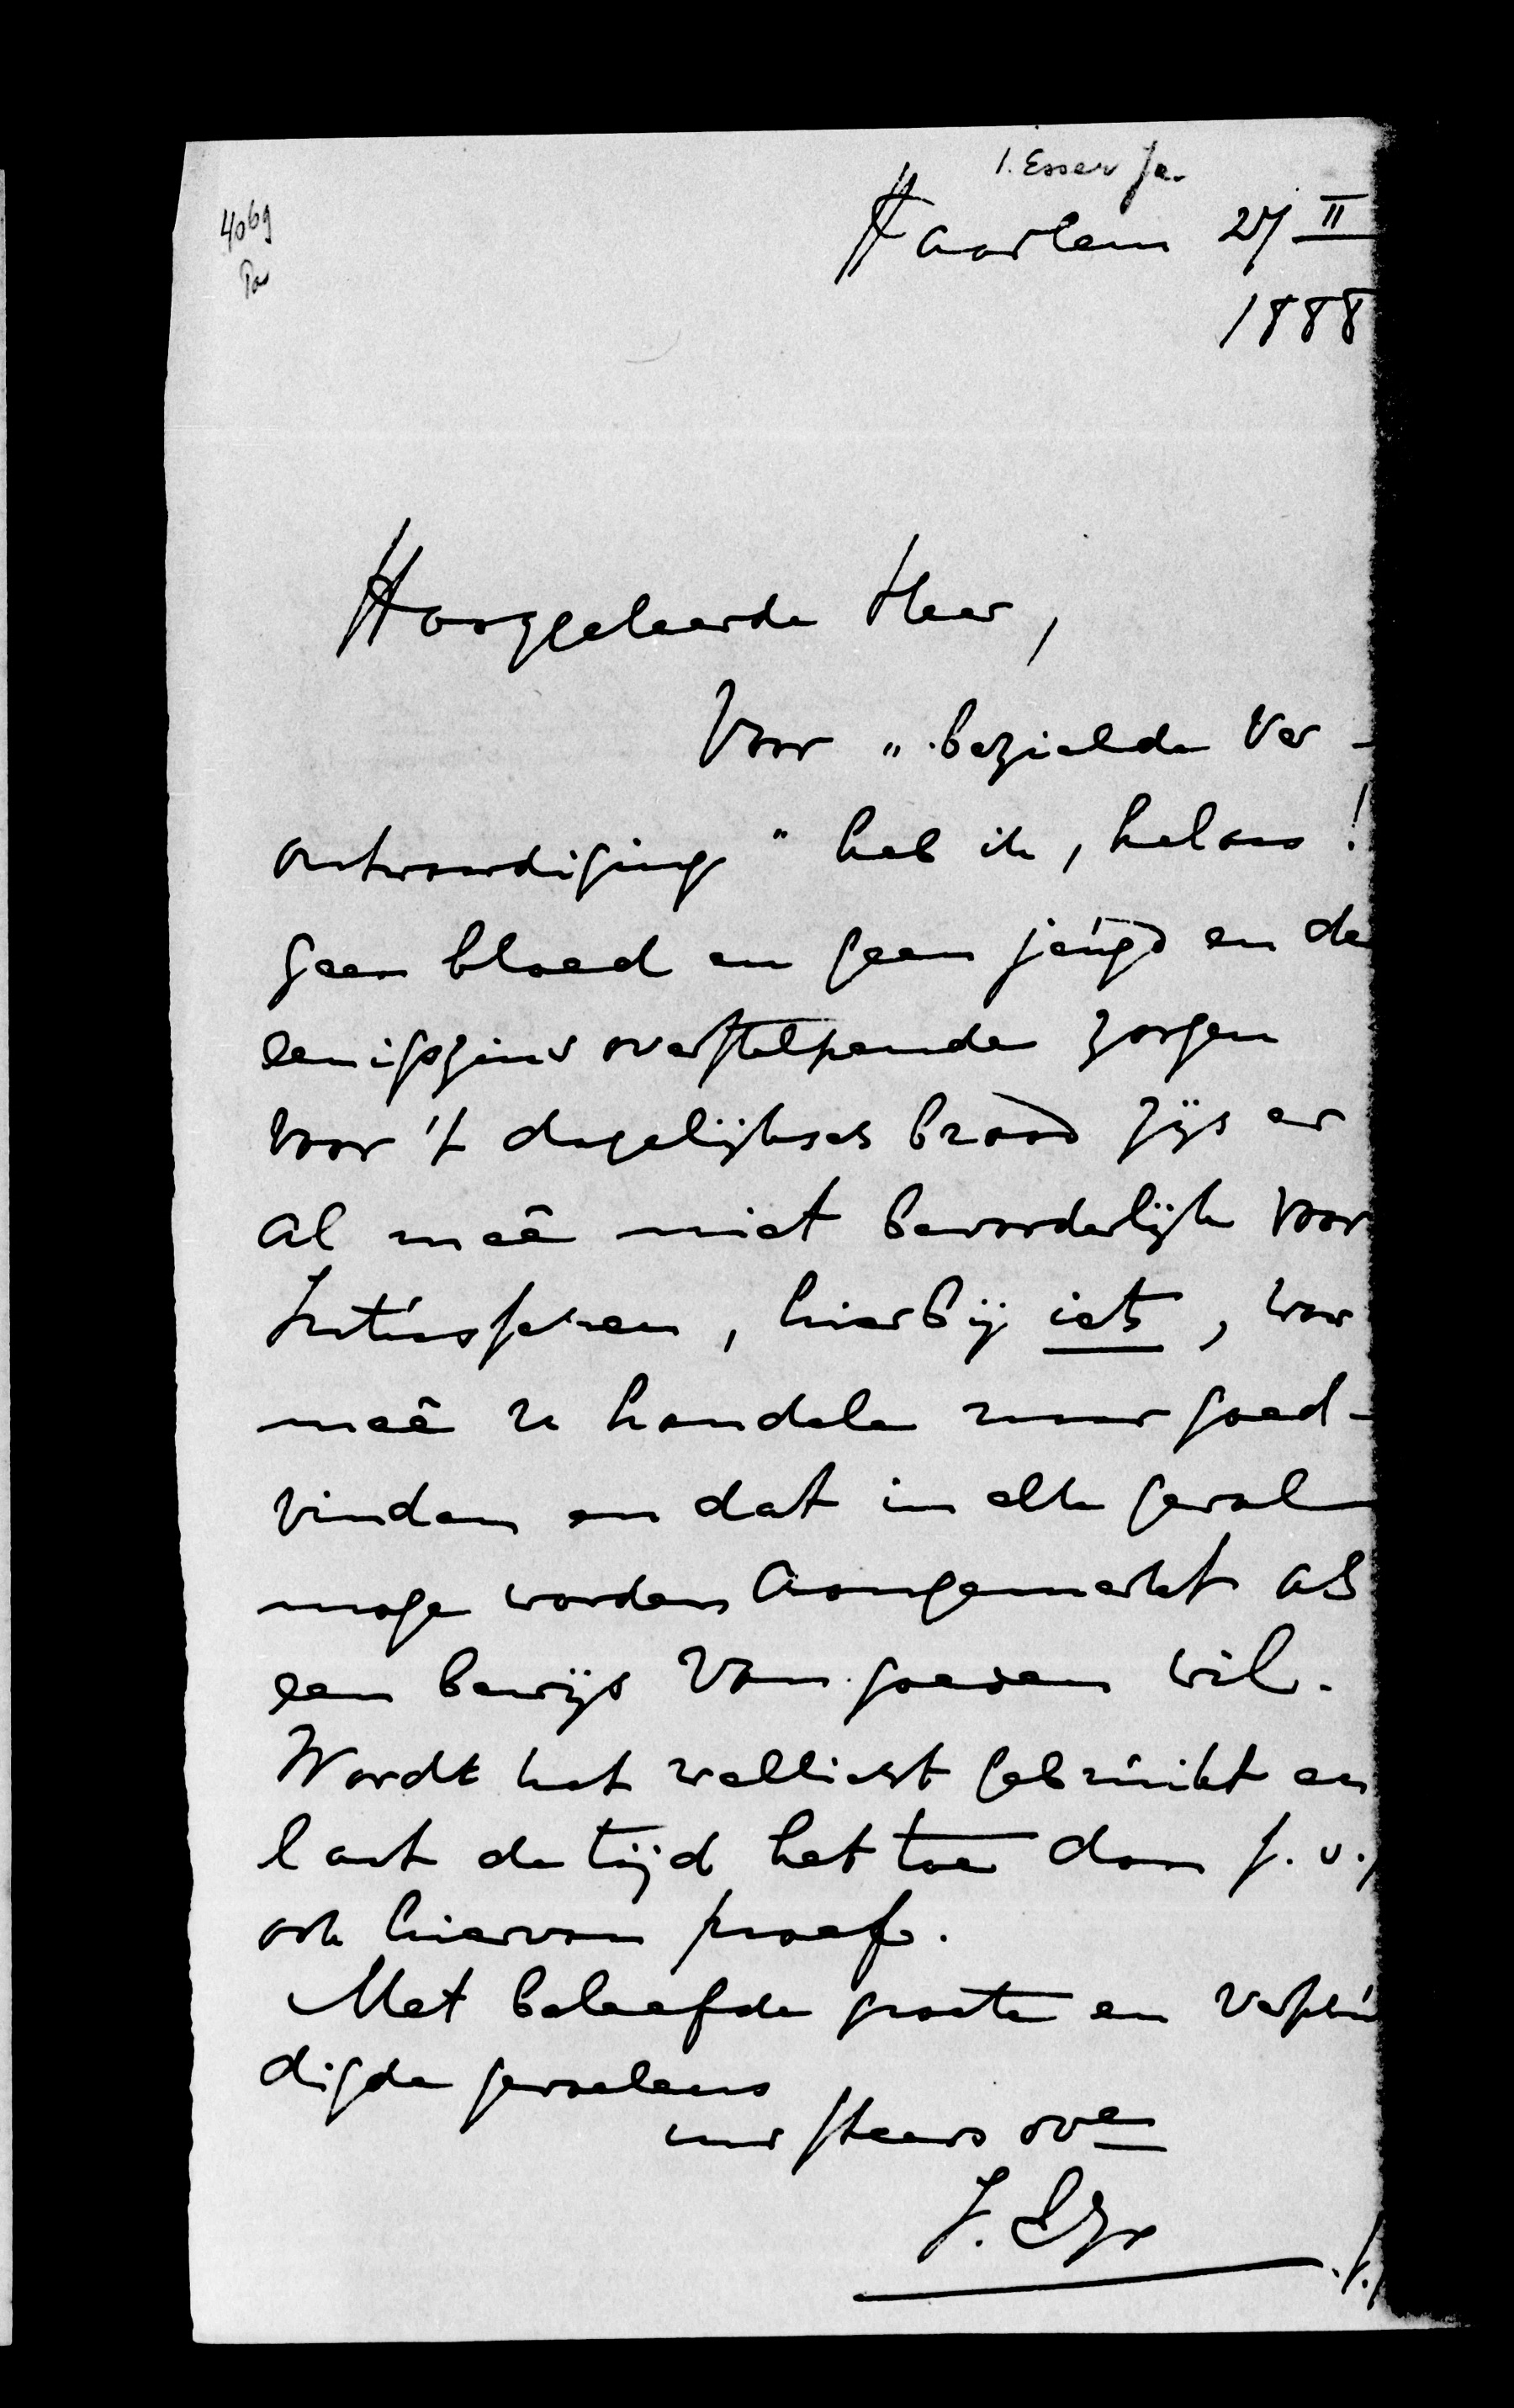 I. Esser Jr.
4069
Haarlem 27 II
1888
Hooggeleerde Heer,
Voor „bezielde Ver-
ontwaardiging" heb ik, helaas!
geen bloed en geen jeugd en de
eenigszins overstelpende zorgen
voor 't dagelijksch brood zijn er
al meê niet bevorderlijk voor
hierbij iets, waar
meê te handelen naar goed-
vinden en dat in elk geval
moge worden aangemerkt als
een bewijs van goeden wil.
Wordt het wellicht gebruikt en
laat de tijd het toe dan s.v.p.
ook hiervan proef.
Met beleefde groete en verschul
digde gevoelens
uw steeds dve
J. E